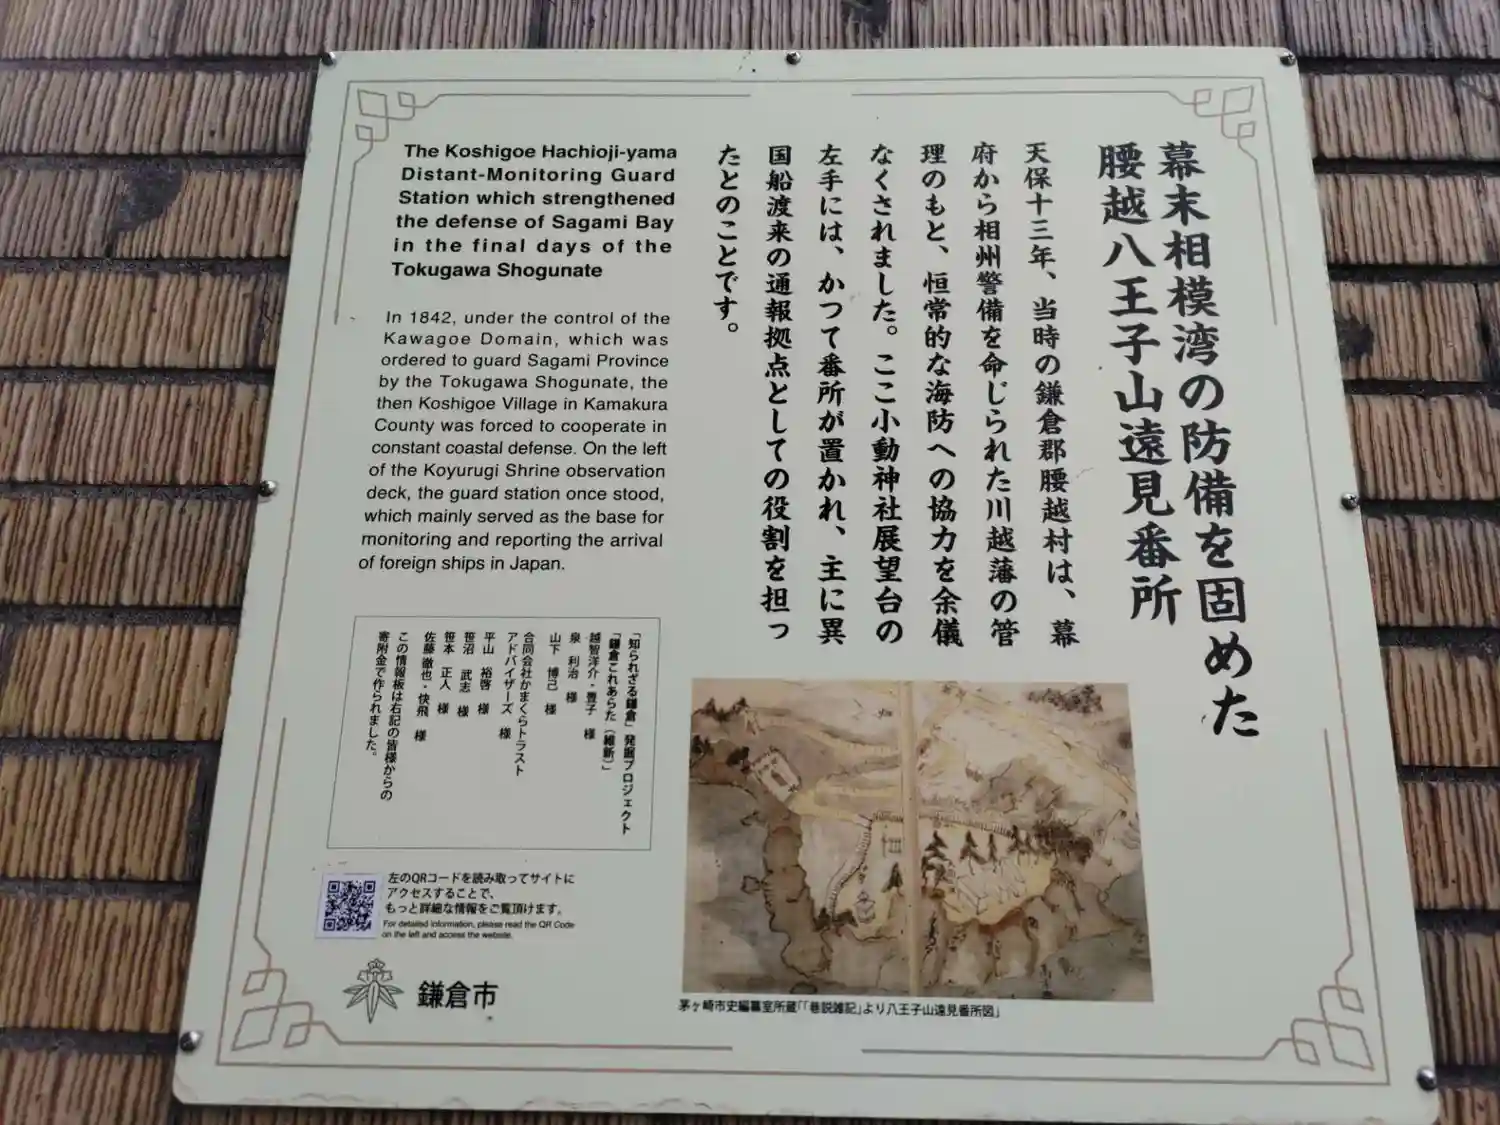 幕末相模湾の防備を固めた
腰越八王子山遠見番所
天保十三年、当時の鎌倉郡腰越村は、幕
府から相州警備を命じられた川越藩の管
理のもと、恒常的な海防への協力を余儀
なくされました。ここ小動神社展望台の
左手には、かつて番所が置かれ、主に異
国船渡来の通報拠点としての役割を担っ
たとのことです。
The Koshigoe Hachioji-yama
Distant-Monitoring Guard
Station which strengthened
the defense of Sagami Bay
in the final days of the
Tokugawa Shogunate
In 1842, under the control of the
Kawagoe Domain, which was
ordered to guard Sagami Province
by the Tokugawa Shogunate, the
then Koshigoe Village in Kamakura
County was forced to cooperate in
constant coastal defense. On the left
of the Koyurugi Shrine observation
deck, the guard station once stood,
which mainly served as the base for
monitoring and reporting the arrival
of foreign ships in Japan.
「知られざる鎌倉」発掘プロジェクト
「鎌倉これあらた（維新）」
越智洋介・豊子 様
泉 利治 様
山下 博己 様
合同会社かまくらトラスト
アドバイザーズ 様
平山 裕啓 様
笹沼 武志 様
笹本 正人 様
佐藤 徹也・快飛 様
この情報板は右記の皆様からの
寄附金で作られました。
左のQRコードを読み取ってサイトに
アクセスすることで、
もっと詳細な情報をご覧頂けます。
For detailed information, please read the QR Code
on the left and access the website.
鎌倉市
茅ヶ崎市史編纂室所蔵「「巷説雑記」より八王子山遠見番所図」